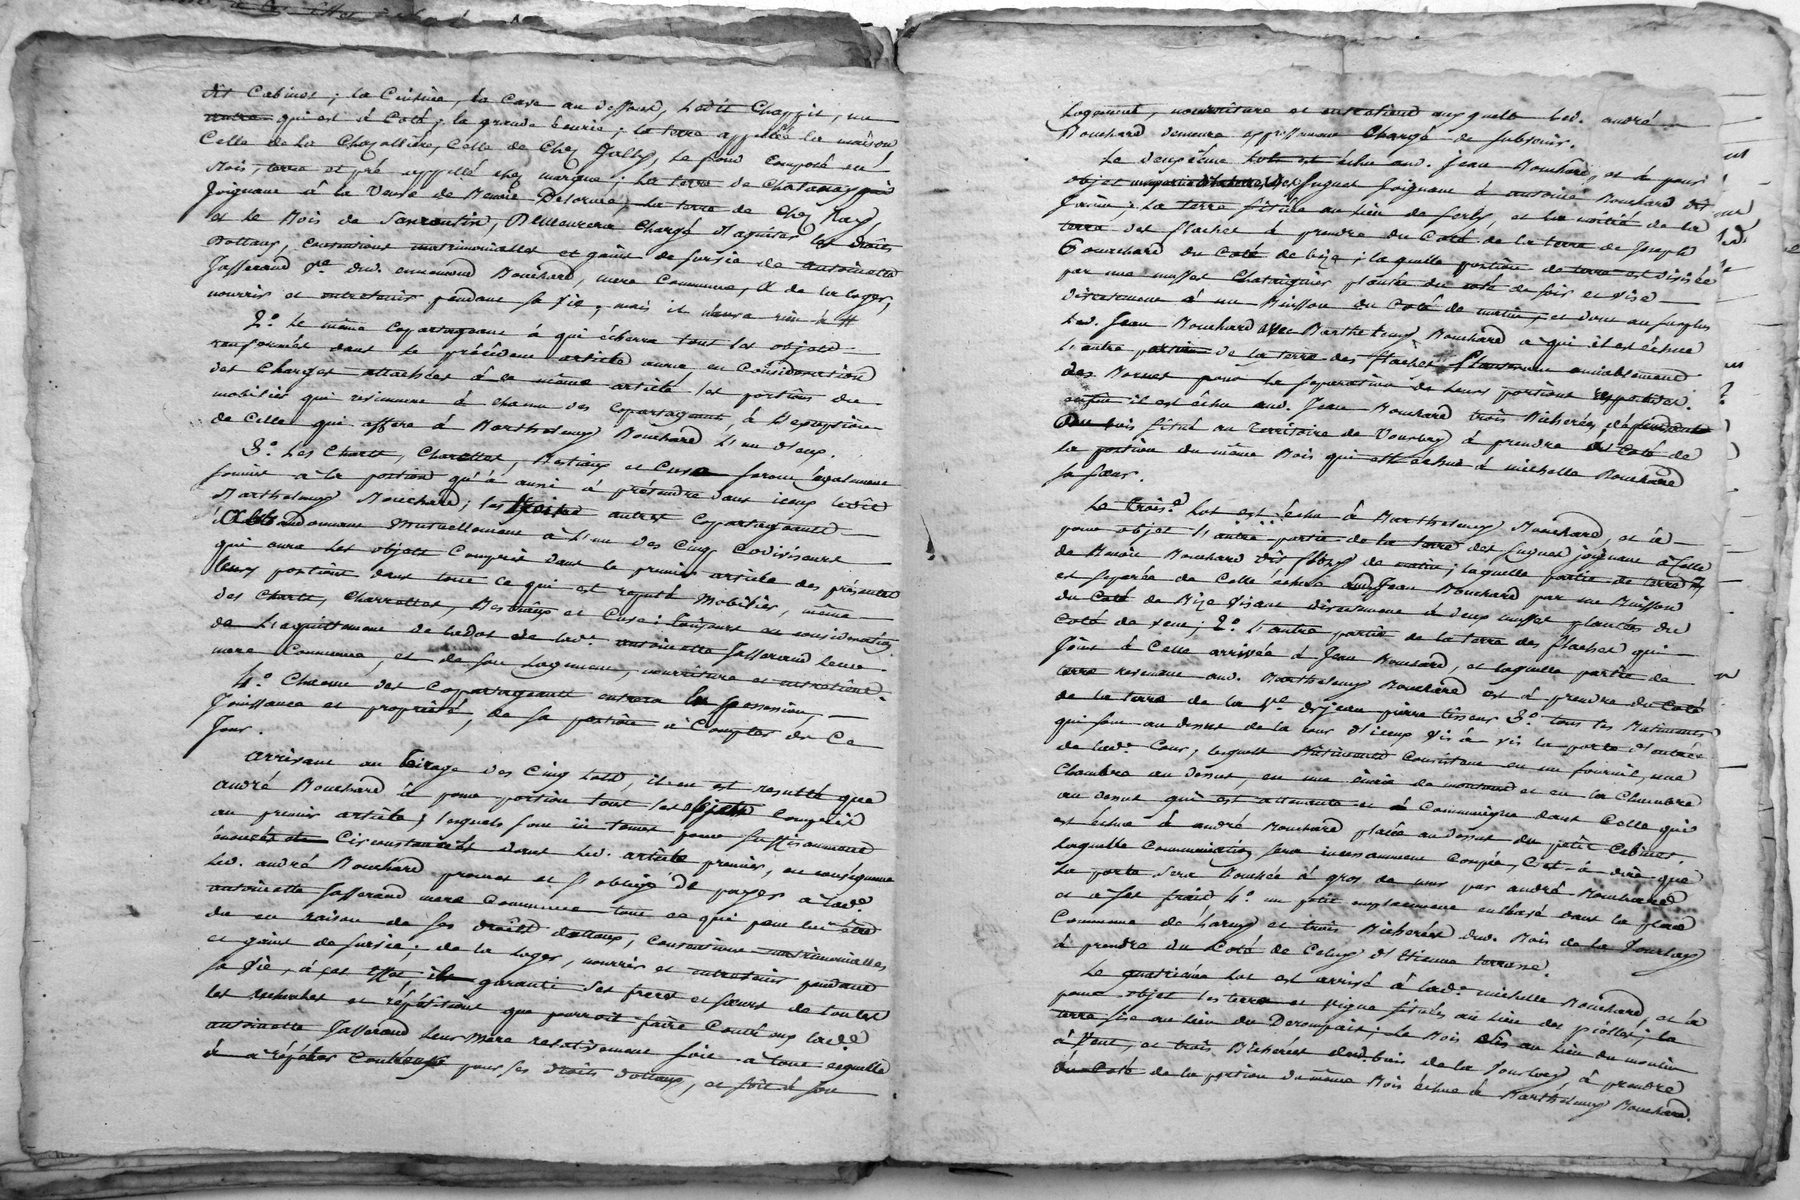 dit Cabinet; la Cuisine, la Cave au dessous, ledit Chappit, un
autre qui est à Coté; la grande écurie; la terre appellée la maison
Celle de la Chazottière, Celle de Chez Jally, le fond Composé en
Bois, terre et pré appellé chez marque; la terre de
Joignant à la Veuve de Benoit Delorme; la terre de Chez Ray
et le Bois de Demeurera Chargé d'aquiter les droits
Dottaux, Conventions matrimonialles et gains de survie de antoinette
Jasserand Ve. dud. ennemond Bouchard, mere Commune, & de la loger,
nourrir et entretenir pendant sa vie, mais il n'aura rien à
2.° Le même Copartageant à qui écherra tout les objets
renfermés dans le précédent article aura, en Considération
des Charges attachées à ce même article les portions du
mobilier qui reviennent à chacun des Copartageants, à l'exception
de Celle qui affere à Barthelemy Bouchard l'un d'eux.
3.° Les Chars, Charettes, Bestiaux et Cuve seront également
soumis à la portion qu'a aussi à prétendre dans iceux ledit
Barthelemy Bouchard; les autres Copartageants
abbandonnant Mutuellement à l'un des Cinq Codiviseurs
qui aura les objets Compris dans le premier article des présentes
leurs portions dans tout ce qui est réputé Mobilier, même
des Chars, Charrettes, Bestiaux et Cuve: toujours en considération
de l'acquittement de la dot de lad.e antoinette Jasserand leur
mere Commune, et de son Logement, nourriture et entretient.
4.° Chacun des Copartageants entrera en possession,
Jouissance et propriété, de sa portion à Compter de Ce
Jour.
Arrivant au tirage des Cinq lots, il en est resulté que
andré Bouchard a pour portion tout les objets Compris
au premier article; lesquels sont ici tenus pour suffisamment
énoncés et Circonstanciés dans led. article premier, en conséquence
led. andré Bouchard promet et s'oblige de payer à lad.e
antoinette Jasserand mere Commune tout ce qui peut lui être
du en raison de ses droits dottaux, Conventions matrimonialles
et gains de survie; de la loger, nourrir et entretenir pendant
sa vie, à cet effet, il garanti ses freres et sœurs de toutes
les recherches et répétitions que pourroit faire Contr'eux lad.e
antoinette Jasserand leur mere relativement soit à tout ce qu'elle
a à répéter pour ses droits dottaux, et soit à son
Logement, nourriture et entretient auxquels led. andré
Bouchard demeure expressément Chargé de subvenir.
Le deuxième Lot est échu aud. Jean Bouchard, et a pour
objet Joignant à antoine Bouchard dit
; la terre située au lieu de et la moitié de la
terre des flaches à prendre du Coté de la terre de Joseph
Bouchard du Coté de bize; laquelle portion de terre est divisée
par une Chataignier plantée du coté de soir et vise
directement à un Buisson du Coté de matin, et dont au surplus
led. Jean Bouchard avec Barthelemy Bouchard a qui il est échue
l'autre portion de la terre des flaches planteront amiablement
des Bornes pour la séparation de leurs portions respectives.
enfin il est échu aud. Jean Bouchard trois Bicherées dépendant
Du bois situé au Territoire de Vourlay à prendre du Coté de
la portion du même Bois qui est échue à michelle Bouchard
sa sœur.
Le trois.e Lot est échu à Barthelemy Bouchard, et a
pour objet 1.° l'autre partie de la terre des joignant à Celle
de Benoit Bouchard dit de matin; laquelle partie de terre
et separée de Celle échue aud. Jean Bouchard par un Buisson
du Coté de Bize visant directement à deux plantés du
Coté de vent; 2.° l'autre partie de la terre des flaches qui
Joint à Celle arrivée à Jean Bouchard, et laquelle partie de
terre revenant aud. Barthelemy Bouchard est à prendre du Coté
de la terre de la Ve. de jean pierre 3.° tous les Batiments
qui sont au dessus de la cour d'iceux vis à vis la porte d'entrée
de lad.e Cour, lesquels Batiments Consistent en un fournil, une
Chambre au dessus, en une écurie de moutons et en la Chambre
au dessus qui est attenante et à Communique dans Celle qui
est échue à andré Bouchard placée au dessus du petit Cabinet.
laquelle Communication sera incessamment Coupée, C'est à dire que
la porte sera Bouchée à gros de murs par andré Bouchard
et à ses frais 4.° un petit emplacement embasé dans la place
Commune de et trois Bicherées dud. Bois de la Vourlay
à prendre du Coté de Celuy d'Etienne terrasse.
Le quatrième Lot est arrivé à lad.e michelle Bouchard, et a
pour objet les terre et vigne situées au lieu des piollet; la
terre sise au lieu du Derompait; le Bois sis au lieu du moulin
à Vent, et trois Bicherées dud. bois de la Vourlay à prendre
du Coté de la portion du même Bois échue à Barthelemy Bouchard.